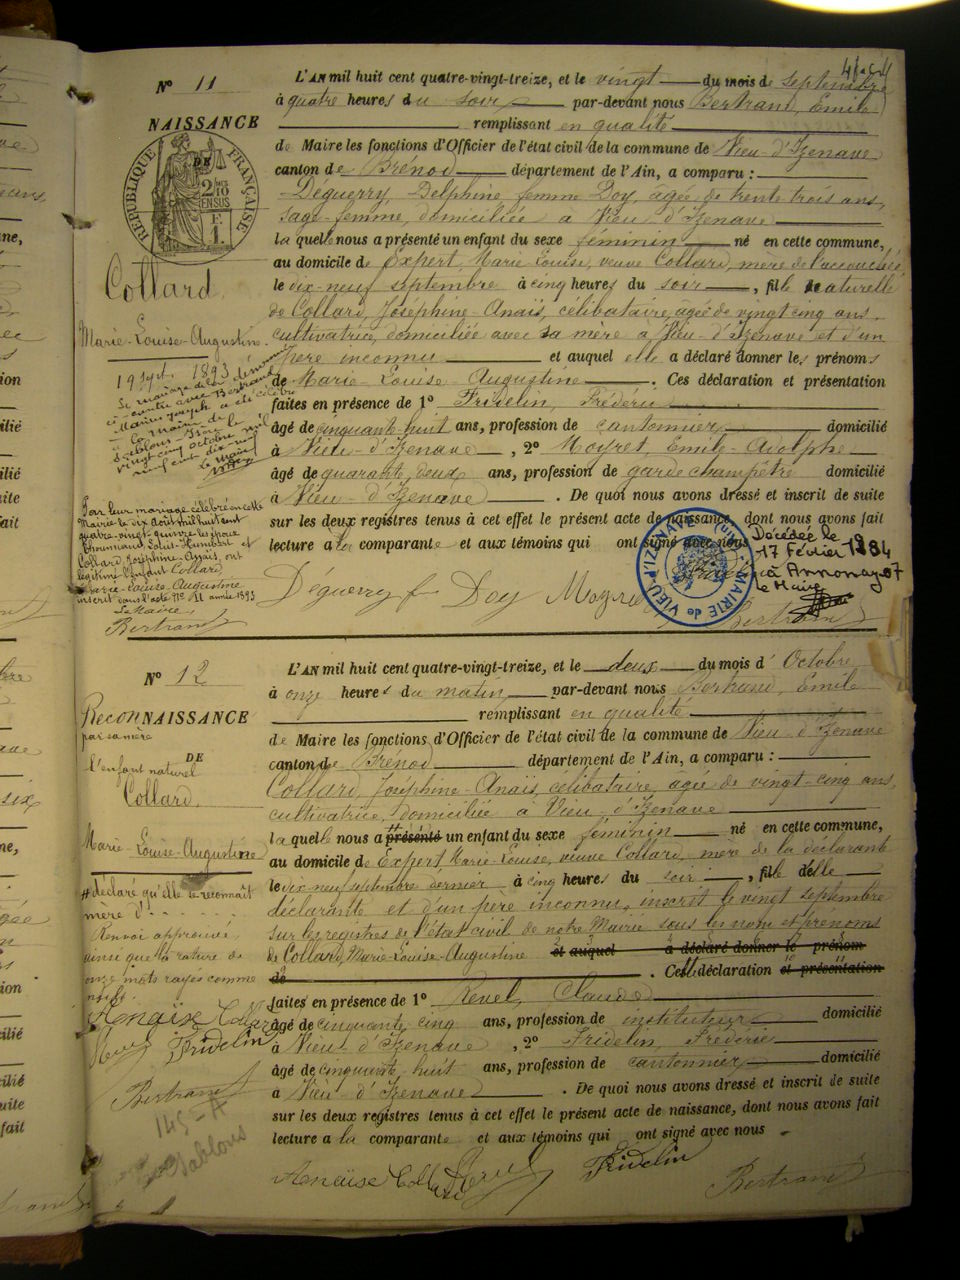 N° 11
NAISSANCE
DE
RÉPUBLIQUE FRANÇAISE
2/10 EN SUS
Collard
Marie-Louise-Augustine
19 Sept. 1893
Par leur mariage célébré en cette
Mairie le dix août mil huit cent
quatre-vingt-quinze les époux
Collard Joséphine-Anaïs, ont
légitimé l'enfant Collard
Marie-Louise-Augustine
inscrit sous l'acte N° 11 année 1893
Le Maire
Bertrand
L'AN mil huit cent quatre-vingt-treize, et le vingt du mois de septembre
à quatre heures du soir par-devant nous Bertrand, Emile
remplissant en qualité
de Maire les fonctions d'Officier de l'état civil de la commune de Vieu-d'Izenave
canton de Brénod département de l'Ain, a comparu :
Déguerry, Delphine femme Doy, âgée de trente trois ans,
sage-femme, domiciliée à Vieu d'Izenave
laquelle nous a présenté un enfant du sexe féminin né en cette commune,
au domicile de Expert, Marie Louise, veuve Collard, mère de l'accouchée
le dix-neuf septembre à cinq heures du soir, fille naturelle
de Collard, Joséphine-Anaïs, célibataire, âgée de vingt cinq ans,
cultivatrice, domiciliée avec sa mère à Vieu-d'Izenave et d'un
père inconnu et auquel elle a déclaré donner les prénoms
de Marie-Louise Augustine. Ces déclaration et présentation
faites en présence de 1° Fridelin, Fréderic
âgé de cinquante-huit ans, profession de cantonnier domicilié
à Vieu-d'Izenave, 2° Moyret, Emile-Adolphe
âgé de quarante deux ans, profession de garde champêtre domicilié
à Vieu-d'Izenave. De quoi nous avons dressé et inscrit de suite
sur les deux registres tenus à cet effet le présent acte de naissance, dont nous avons fait
lecture à la comparante et aux témoins qui ont signé avec nous
Décédée le
17 Février 1984
à Annonay 07
le Maire
MAIRIE de VIEU d'IZENAVE
Déguerry f Doy Moyret Bertrand
N° 12
ReconNAISSANCE
par sa mère
DE
l'enfant naturel
Collard
Marie-Louise-Augustine
# déclaré qu'elle se reconnait
mère d'
Renvoi approuvé
ainsi que la rature de
onze mots rayés comme
nuls.
Anaïse Collard
Revel Fridelin
Bertrand
145-A
Sablons
L'AN mil huit cent quatre-vingt-treize, et le deux du mois d'Octobre
à onze heures du matin par-devant nous Bertrand, Emile
remplissant en qualité
de Maire les fonctions d'Officier de l'état civil de la commune de Vieu-d'Izenave
canton de Brénod département de l'Ain, a comparu :
Collard, Joséphine-Anaïs, célibataire, âgée de vingt-cinq ans,
cultivatrice, domiciliée à Vieu, d'Izenave
laquelle nous a # présenté un enfant du sexe féminin né en cette commune,
au domicile de Expert Marie-Louise, veuve Collard, mère de la déclarante
le dix neuf septembre dernier à cinq heures du soir, fille d'elle
déclarante et d'un père inconnu, inscrit le vingt septembre
sur les registres de l'état civil de notre Mairie sous les nom et prénoms
de Collard, Marie-Louise-Augustine et auquel a déclaré donner le prénom
de. Cette déclaration et présentation
faites en présence de 1° Revel, Claude
âgé de cinquante cinq ans, profession de instituteur domicilié
à Vieu d'Izenave, 2° Fridelin, Frédéric
âgé de cinquante huit ans, profession de cantonnier domicilié
à Vieu-d'Izenave. De quoi nous avons dressé et inscrit de suite
sur les deux registres tenus à cet effet le présent acte de naissance, dont nous avons fait
lecture à la comparante et aux témoins qui ont signé avec nous
Anaïse Collard Revel Fridelin Bertrand